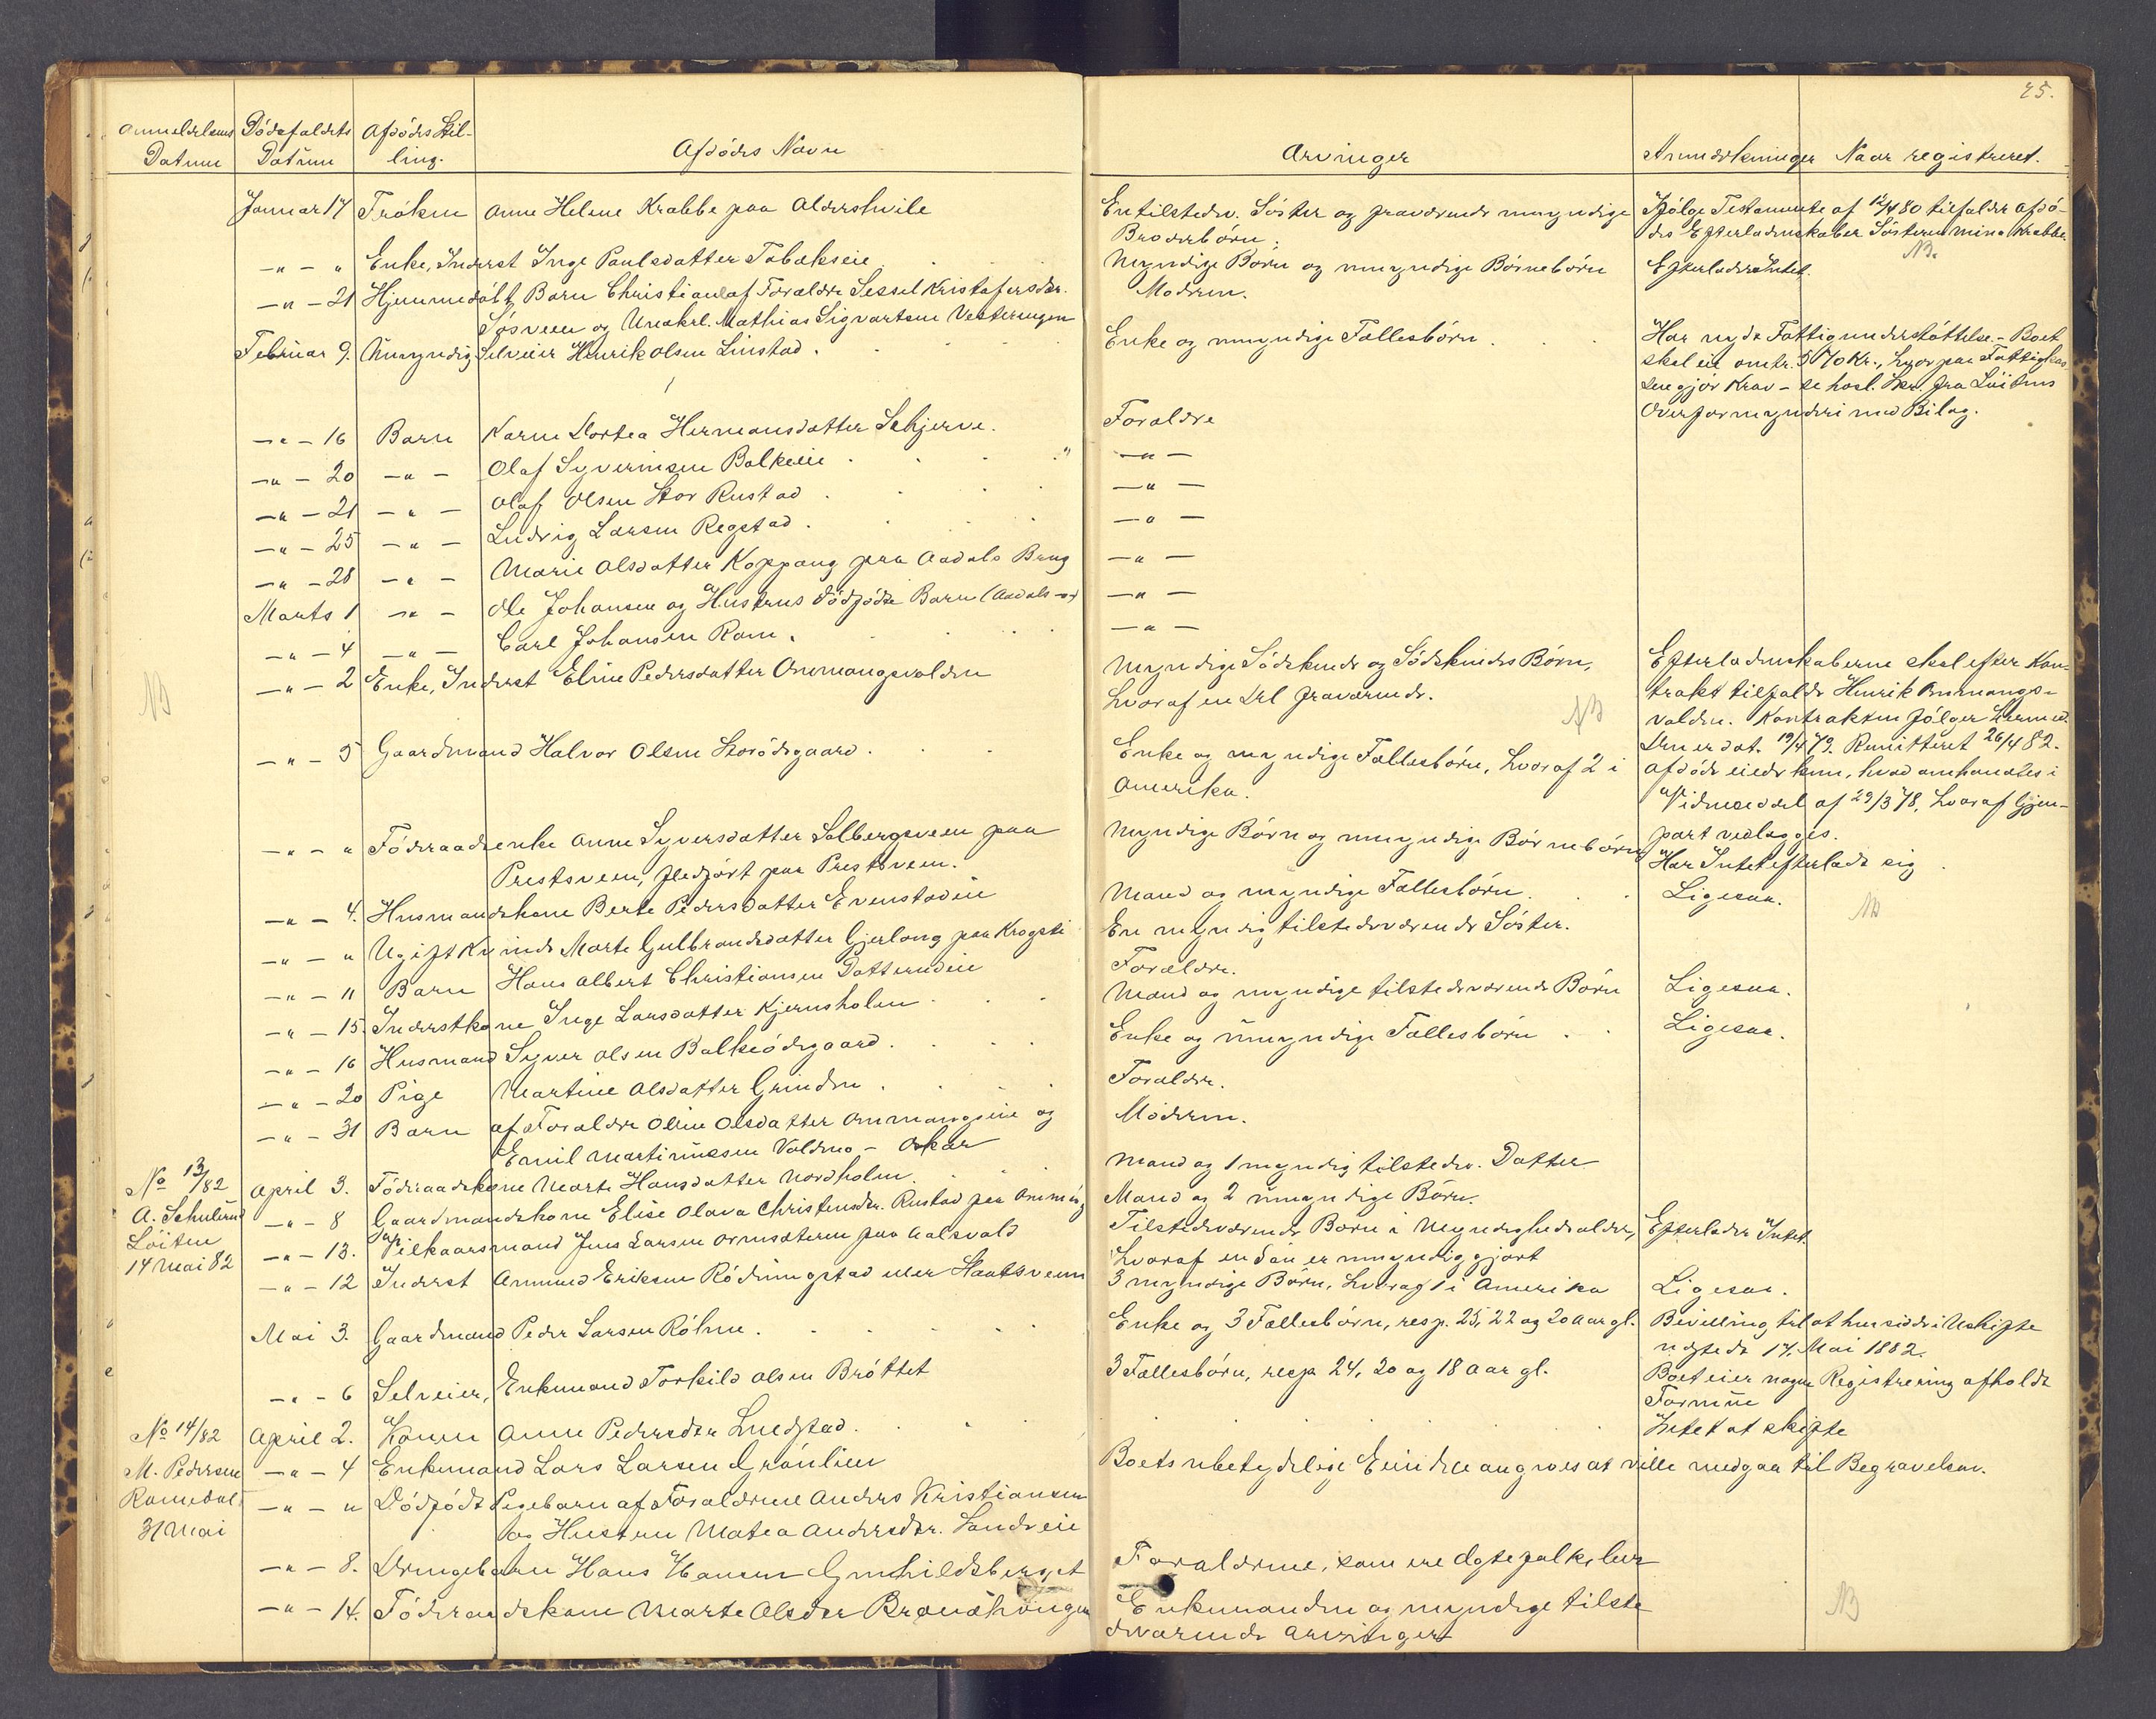 25.
Anmeldelsens Datum
Dödsfaldets Datum
Afdödes Stilling.
Afdödes Navn
Arvinger
Anmærkninger
Naar registreret.
Januar 17 Fröken Anne Helene Krabbe paa Aldershvile
Entilstedev. Söster og fraværende umyndige Broderbörn.
Ifölge Testamente af 12/4 80 tilfalder afdödes Efterladenskaber Söster Mina Krabbe.
NB.
-"- " Enke, Inderst Inge Paulsdatter Tobakseie
Myndige Børn og umyndige Börnebörn
Efterlader Intet.
-"- 21 Hjemmedöbt Barn Christian af Forældre Sessel Kristofersdtr.
Sösveen og Unakrl. Mathias Sigvartsen Vesteringen
Moderen.
Februar 9. Umyndig Selveier Henrik Olsen Linstad.
Enke og umyndige Fællesbörn
Har nydt Fattigunderstöttelse. - Boet
skal eie omtr. 570 Kr., hvorpaa Fattigkas
sen gjör Krav - se hosl. Skr. fra Löitens
Overformynderi med Bilag.
-"- 16 Barn Karen Dortea Hermansdatter Schjerve.
Forældre
-"- 20 -"- Olaf Syverinsen Balkeeie
-"-
-"- 21 -"- Olaf Olsen Stor Rustad
-"-
-"- 25 -"- Ludvig Larsen Regstad.
-"-
-"- 28 -"- Marie Olsdatter Koppang paa Aadals Brug
-"-
Marts 1 -"- Ole Johansen og Hustrus dödfödte Barn (Aadals -"-)
-"-
-"- 4 -"- Carl Johansen Rom.
-"-
NB
-"- 2 Enke, Inderst Eline Pedersdatter Ommangsvolden
Myndige Södskende og Södskendes Börn,
hvoraf en Del fraværende.
NB
Efterladenskaberne skal efter Kon-
trakt tilfalde Henrik Ommangs-
volden. Kontrakten fölger hermed.
Den er dat. 19/4 79. Remitteret 26/4 82.
-"- 5 Gaardmand Halvor Olsen Storödegaard.
Enke og myndige Fællesbörn, hvoraf 2 i
Amerika.
Afdöde eiede kun, hvad omhandles i
Vidnemöddel af 29/3 78, hvoraf Gjen-
part vedlægges.
-"- " Föderaadsenke Anne Syversdatter Solbergsveen paa
Prestsveen, fledfört paa Prestsveen.
Myndige Börn og umyndige Börnebörn
Har Intet efterladt sig
-"- 4. Husmandskone Berte Pedersdatter Evenstadeie
Mand og myndige Fællesbörn
Ligesaa.
NB
-"- " Ugift Kvinde Marte Gulbrandsdatter Gjerlang paa Krogsti
En myndig tilstedeværende Söster.
-"- 11 Barn Hans Albert Christiansen Dotterudeie
Forældre.
-"- 15. Inderstkone Inge Larsdatter Kjernsholen
Mand og myndige tilstedeværende Börn
Ligesaa.
-"- 16 Husmand Syver Olsen Balkeödegaard.
Enke og umyndige Fællesbörn
Ligesaa.
-"- 20 Pige Martine Olsdatter Grinden
Forældre.
-"- 31 Barn af Forældre Oline Olsdatter Ommangseie og
Emil Martiniusen Voldmo - Oskar
Moderen.
No 13/82
A. Schulerud
Löiten
14 Mai 82
April 3. Föderaadskone Marte Hansdatter Nordholen.
Mand og 1 myndig tilstedev. Datter
-"- 8 Gaardmandskone Elise Olava Christensdtr. Rustad paa Ommang
Mand og 2 umyndige Börn.
-"- 13. Vilkaarsmand Jens Larsen Ormsæteren paa Aalsvold
Tilstedeværende Börn i Myndighedsalder,
hvoraf en Sön er umyndiggjort
Efterlader Intet.
-"- 12 Inderst Amund Eriksen Rödningstad eller Haatsveen
3 myndige Börn, hvoraf 1 i Amerika
Ligesaa.
Mai 3. Gaardmand Peder Larsen Röhne.
Enke og 3 Fællesbörn, resp. 25, 22 og 20 Aar gl.
Bevilling til at hensidde i Uskifte
udstedt 17. Mai 1882.
-"- 6 Selveier, Enkemand Torkild Olsen Bröttet
3 Fællesbörn, resp 24, 20 og 18 Aar gl.
Boet eier nogen Formue
Registrering afholdt
No 14/82
M. Pedersen
Romedal
31 Mai
April 2. Konen Anne Pedersdtr Lundstad.
Intet at skifte
-"- 4 Enkemand Lars Larsen Grönlien
Boets ubetydelige Eiendele angives at ville medgaa til Begravelsen.
-"- " Dödfödt Pigebarn af Forældrene Anders Kristiansen
og Hustru Matea Andersdtr. Sandseie
-"- 8. Drengebarn Hans Hansen Gunhildsberget
Forældrene, som ere Ægtefolk, lever
-"- 14. Föderaadskone Marte Olsdtr Brænshaugen
Enkemanden og myndige tilste
deværende Arvinger
NB